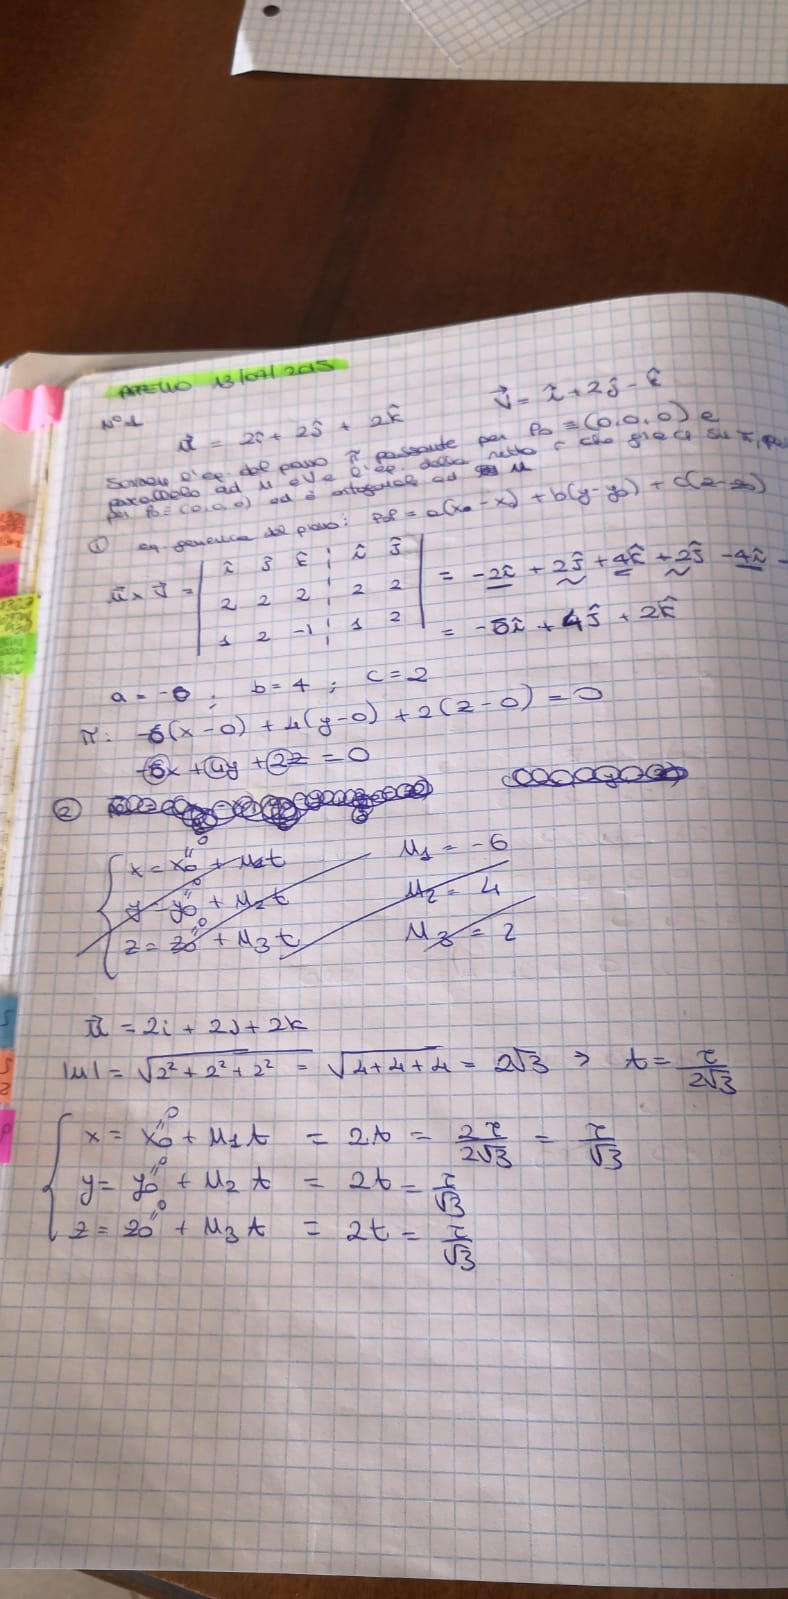 APPELLO 13/07/2015
N°1
u⃗ = 2î + 2ĵ + 2k̂ v⃗ = î + 2ĵ - k̂
Scrivere l'eq. del piano π passante per P₀ = (0,0,0) e
parallelo ad u e v e l'eq. della retta r che giace su π,
per P₀ = (0,0,0) ed è ortogonale ad u
① eq. generica del piano: = a(x₀-x) + b(y-y₀) + c(z-z₀)
u⃗ x v⃗ = | î ĵ k̂ ¦ î ĵ |
| 2 2 2 ¦ 2 2 | = -2î + 2ĵ + 4k̂ + 2ĵ - 4î -
| 1 2 -1 ¦ 1 2 | = -6î + 4ĵ + 2k̂
a = -6 ; b = 4 ; c = 2
π: -6(x-0) + 4(y-0) + 2(z-0) = 0
-6x + 4y + 2z = 0
②
x = x₀ + u₁t u₁ = -6
y = y₀ + u₂t u₂ = 4
z = z₀ + u₃t u₃ = 2
u⃗ = 2i + 2j + 2k
|u| = √2² + 2² + 2² = √4+4+4 = 2√3 ⇒ t = τ/2√3
x = x₀ + u₁t = 2t = 2τ/2√3 = τ/√3
y = y₀ + u₂t = 2t = τ/√3
z = z₀ + u₃t = 2t = τ/√3